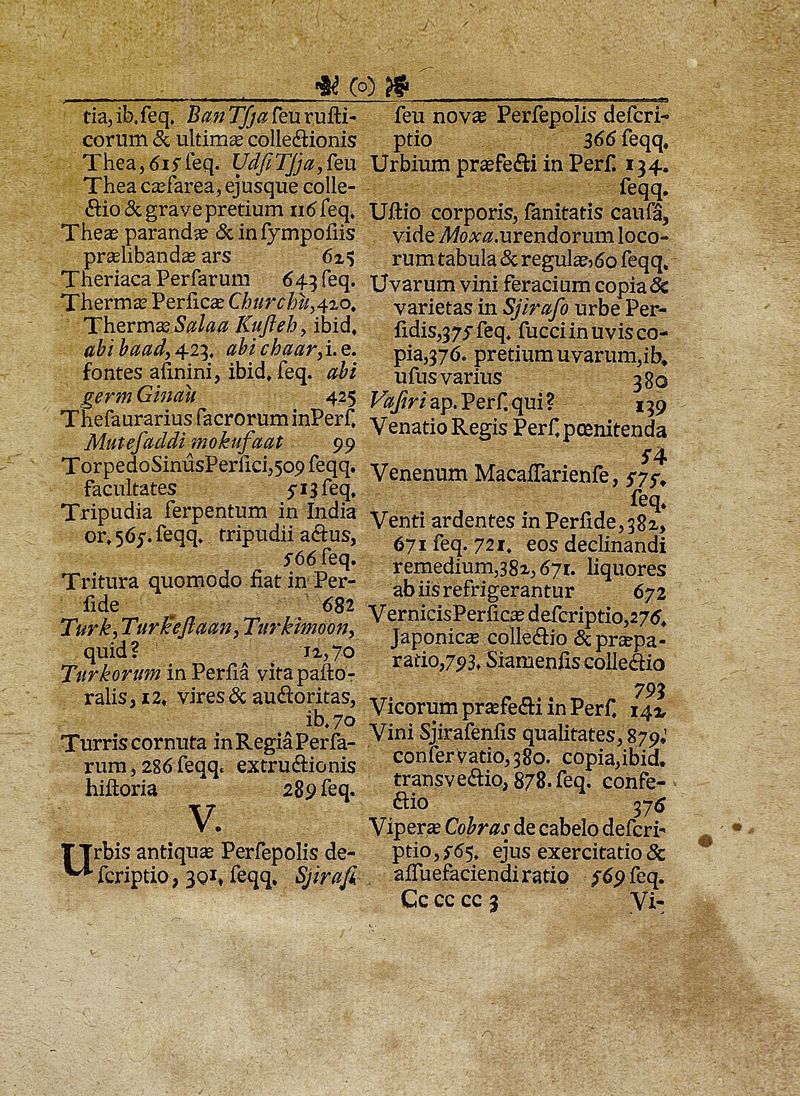 (o)
tia, ib. ſeq. Ban Tſja ſeu ruſti-
corum & ultimæ collectionis
Thea, 615 ſeq. Udſi Tſja, ſeu
Thea cæſarea, ejusque colle-
ctio & grave pretium 116 ſeq.
Theæ parandæ & in ſympoſiis
prælibandæ ars 625
Theriaca Perſarum 643 ſeq.
Thermæ Perſicæ Churchu, 420.
Thermæ Salaa Kuſteh, ibid.
abi baad, 423. abi chaar, i. e.
fontes aſinini, ibid. ſeq. abi
germ Ginau 425
Theſaurarius ſacrorum in Perſ.
Muteſaddi mokufaat 99
Torpedo Sinûs Perſici, 509 ſeqq.
facultates 513 ſeq.
Tripudia ſerpentum in India
or. 565. ſeqq. tripudii actus,
566 ſeq.
Tritura quomodo fiat in Per-
ſide 682
Turk, Turkeſtaan, Turkimoon,
quid? 12, 70
Turkorum in Perſiâ vita paſto-
ralis, 12. vires & auctoritas,
ib. 70
Turris cornuta in Regiâ Perſa-
rum, 286 ſeqq. extructionis
hiſtoria 289 ſeq.
V.
Urbis antiquæ Perſepolis de-
ſcriptio, 301. ſeqq. Sjiraſi
ſeu novæ Perſepolis deſcri-
ptio 366 ſeqq.
Urbium præfecti in Perſ. 134.
ſeqq.
Uſtio corporis, ſanitatis cauſâ,
vide Moxa. urendorum loco-
rum tabula & regulæ, 60 ſeqq.
Uvarum vini feracium copia &
varietas in Sjiraſo urbe Per-
ſidis, 375 ſeq. ſucci in uvis co-
pia, 376. pretium uvarum, ib.
uſus varius 380
Vaſiri ap. Perſ. qui? 139
Venatio Regis Perſ. pœnitenda
54
Venenum Macaſſarienſe, 575.
ſeq.
Venti ardentes in Perſide, 382,
671 ſeq. 721. eos declinandi
remedium, 382, 671. liquores
ab iis refrigerantur 672
Vernicis Perſicæ deſcriptio, 276.
Japonicæ collectio & præpa-
ratio, 793. Siamenſis collectio
793
Vicorum præfecti in Perſ. 142
Vini Sjiraſenſis qualitates, 879.
conſervatio, 380. copia, ibid.
transvectio, 878. ſeq. confe-
ctio 376
Viperæ Cobras de cabelo deſcri-
ptio, 565. ejus exercitatio &
aſſuefaciendi ratio 569 ſeq.
Cc cc cc 3 Vi-